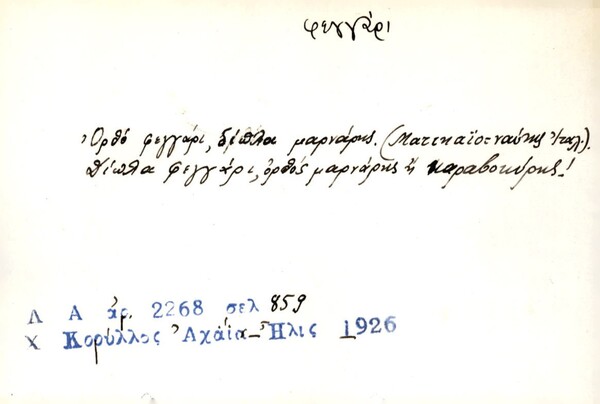 φεγγάρι
Ὀρθό φεγγάρι, δίπλα μαρνάρης. (Ματτκαῖο = ναύτης Ἰταλ.).
Δίπλα φεγγάρι, ὀρθός μαρνάρης ἤ καραβοκύρης!
Λ Α ἀρ. 2268 σελ 859
Χ Κορύλλος Ἀχαΐα-Ἦλις 1926